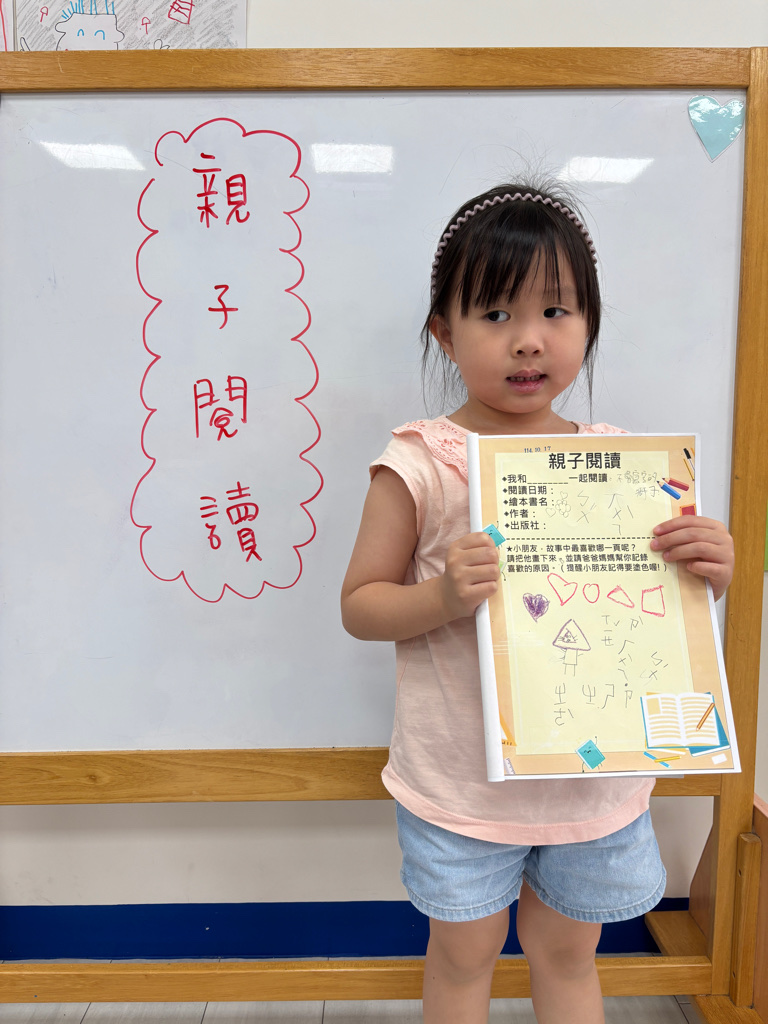 親
子
閱
讀
114.10.17
親子閱讀
◆我和________一起閱讀。
◆閱讀日期：
◆繪本書名：
◆作者：
◆出版社：
★小朋友，故事中最喜歡哪一頁呢？
請把他畫下來。並請爸爸媽媽幫你記錄
喜歡的原因。（提醒小朋友記得要塗色喔！）